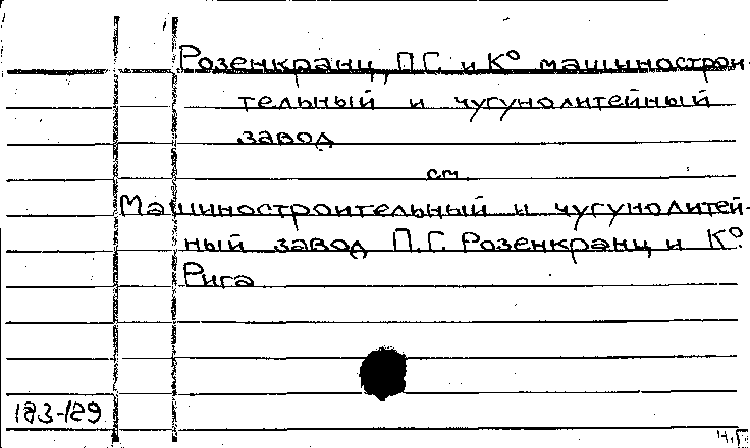 Розенкранц, П.Г. и К⁰ машинострои-
тельный и чугунолитейный
завод
см.
Машиностроительный и чугунолитей-
ный завод П.Г. Розенкранц и К⁰.
Рига
183-189
Н.Г.